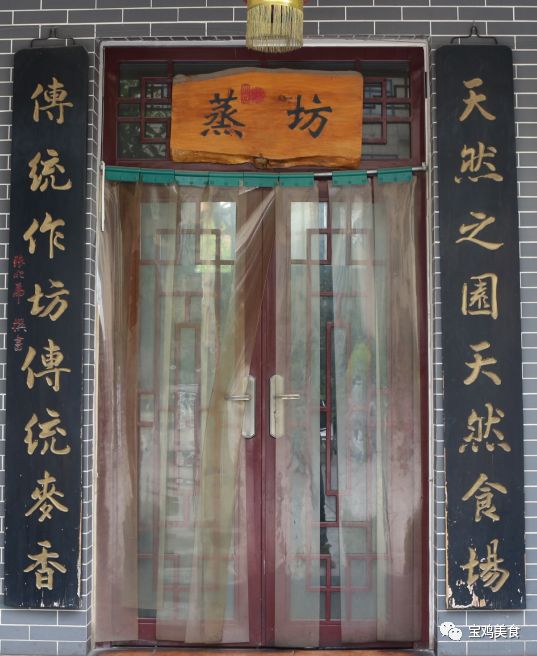 蒸坊
天然之園天然食場
傳統作坊傳統麥香
宝鸡美食